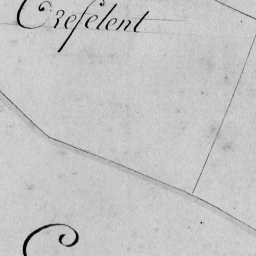 Crefelent
C